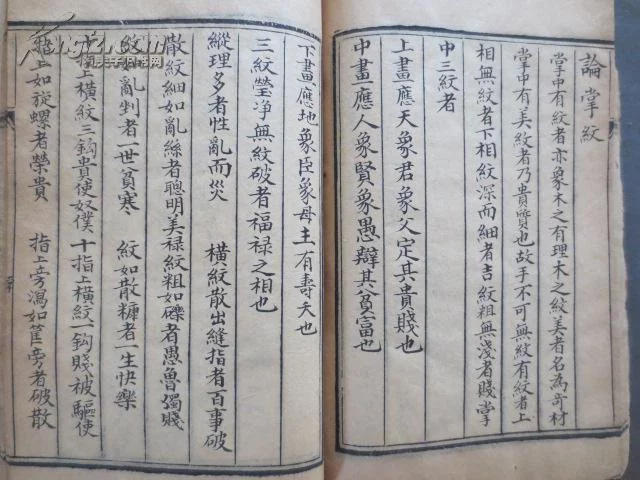 論掌紋
掌中有紋者亦象木之有理木之紋美者名為竒材
掌中有美紋者乃貴質也故手不可無紋有紋者上
相無紋者下相紋深而細者吉紋粗無淺者賤掌
中三紋者
上畫應天象君象父定其貴賤也
中畫應人象賢象愚辯其貧富也
下畫應地象臣象母主有壽夭也
三紋瑩净無紋破者福禄之相也
縱理多者性亂而災 橫紋散出縫指者百事破
散紋細如亂絲者聰明美禄紋粗如礫者愚魯濁賤
紋亂剉者一世貧寒 紋如散糠者一生快樂
指上橫紋三鈎貴使奴僕十指上橫紋一鈎賤被驅使
指上如旋螺者榮貴 指上旁瀉如筐旁者破散